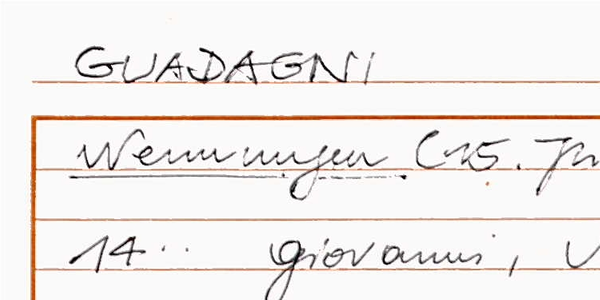 GUADAGNI
Nennungen (15. Jh
14.. Giovanni, V